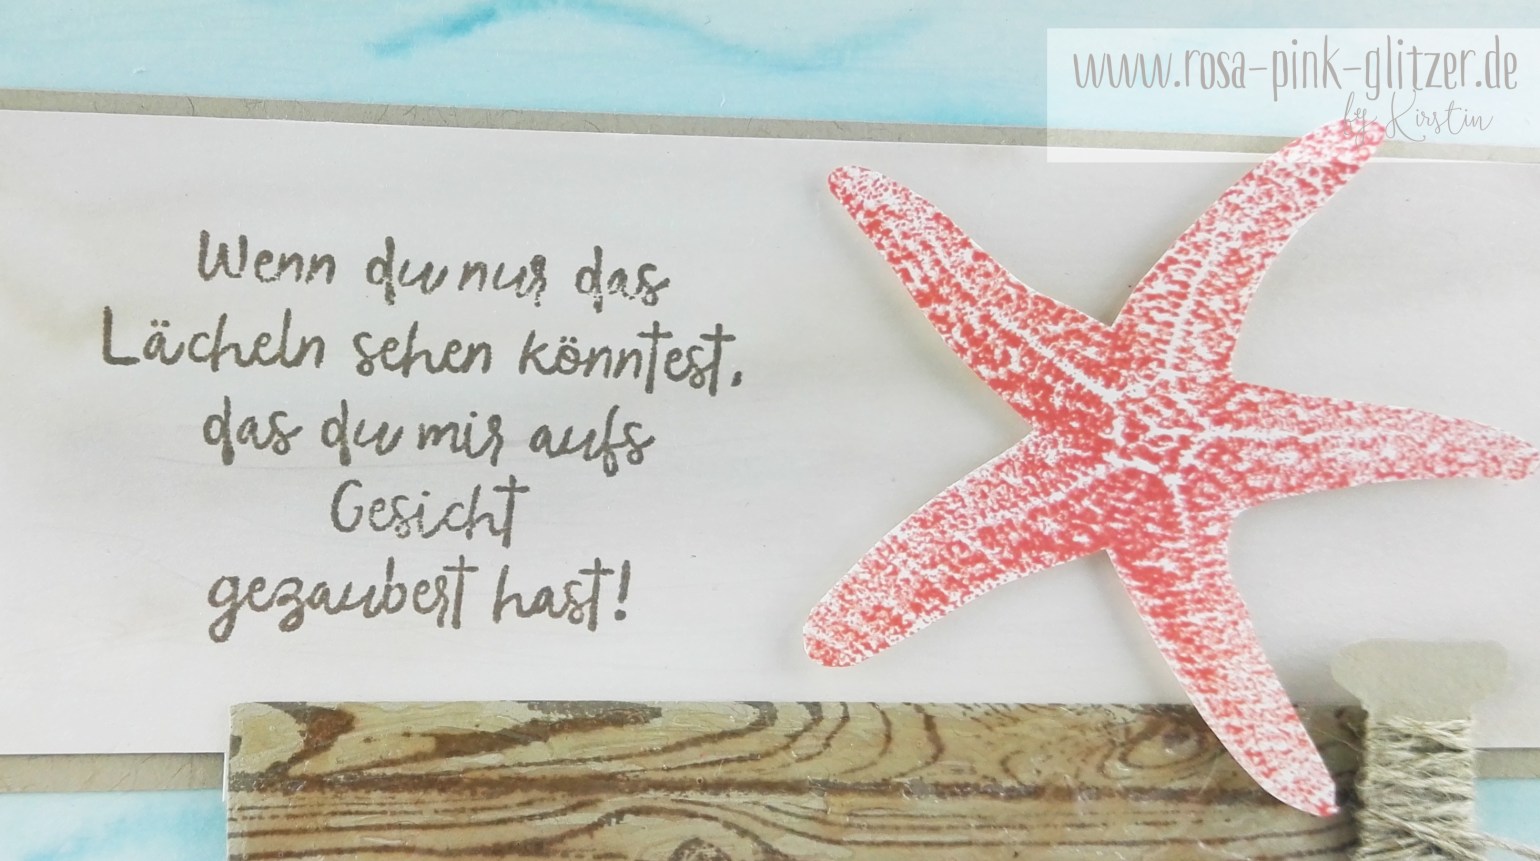 www.rosa-pink-glitzer.de
by Kirstin
Wenn du nur das
Lächeln sehen könntest,
das du mir aufs
Gesicht
gezaubert hast!